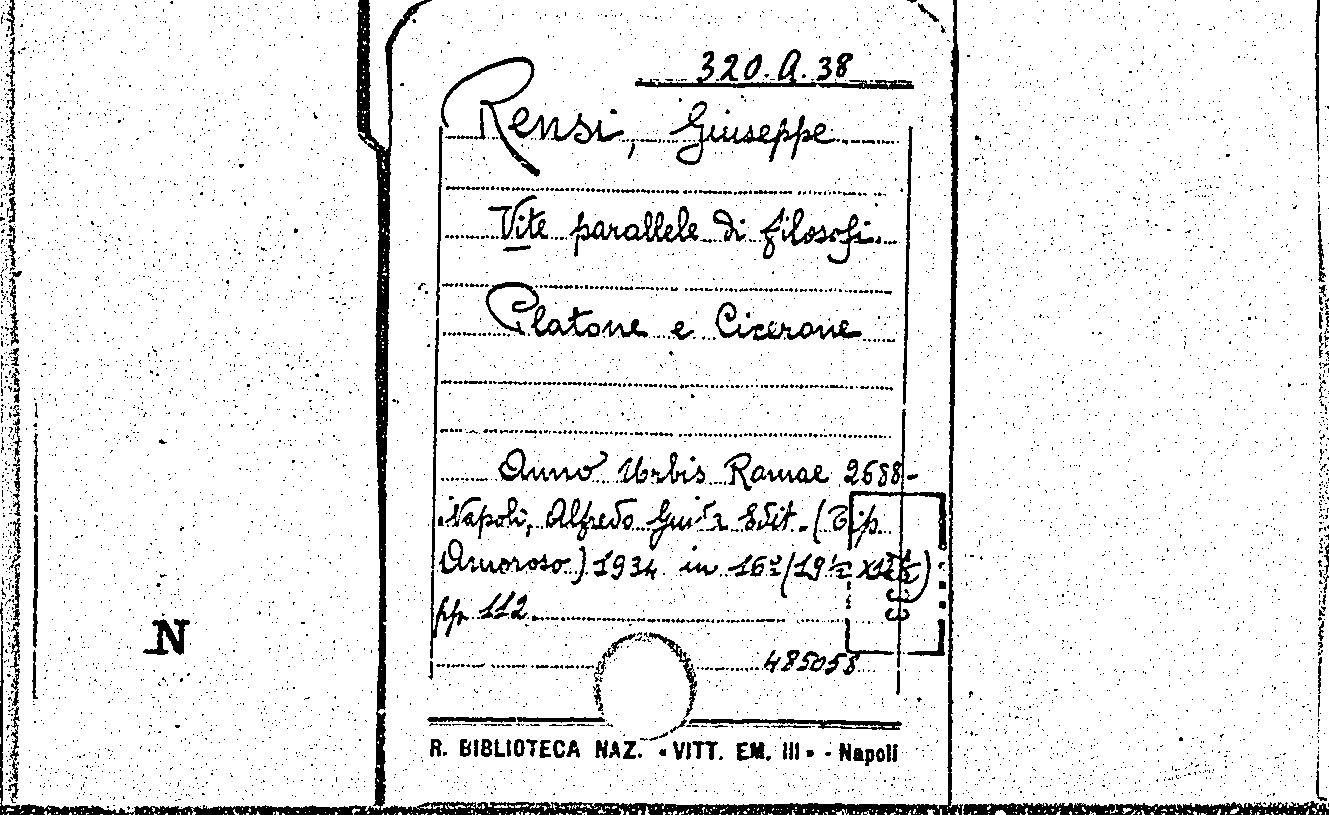 320.A.38
Rensi, Giuseppe
Vite parallele di filosofi.
Platone e Cicerone
Anno Urbis Romae 2688-
Napoli, Alfredo Guida Edit. (Tip.
Amoroso) 1934 in 16º (19½ x12½)
pp. 112.
485058
N
R. BIBLIOTECA NAZ. «VITT. EM. III» - Napoli